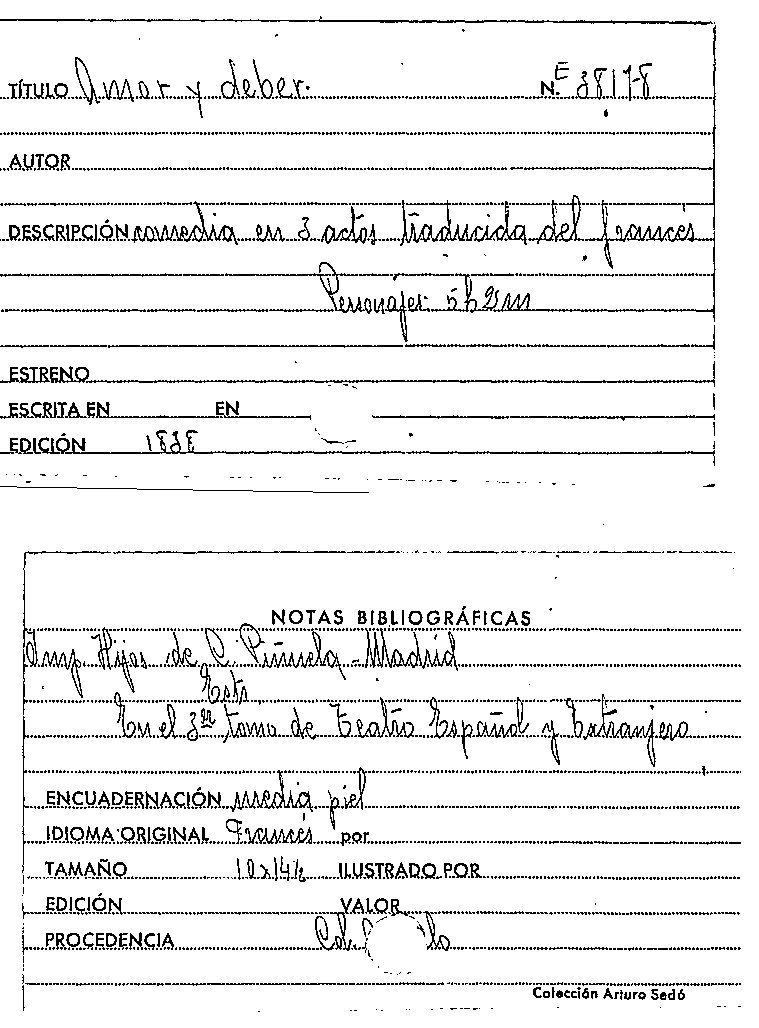 TÍTULO Amor y deber. N.E 38178
AUTOR
DESCRIPCIÓN comedia en 3 actos traducida del francés
Personajes 5h 2m
ESTRENO
ESCRITA EN EN
EDICIÓN 1838
NOTAS BIBLIOGRÁFICAS
Imp. Hijos de C. Piñuela - Madrid
En el 3er tomo de Teatro Español y Extranjero
ENCUADERNACIÓN media piel
IDIOMA ORIGINAL Francés por
TAMAÑO 10x14½ ILUSTRADO POR
EDICIÓN VALOR
PROCEDENCIA Col.
Colección Arturo Sedó